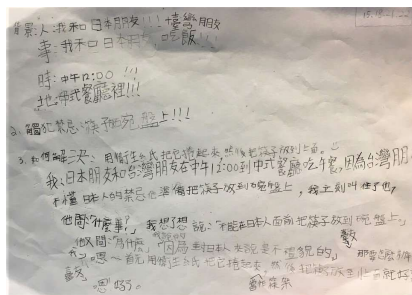 背景:人:我和日本朋友!!! 臺灣朋友
事:我和日本朋友吃飯!!!
時:中午12:00 !!!
地:中式餐廳裡!!!
2. 觸犯禁忌:筷子 碗盤上!!!
3. 如何解決:用衛生紙把它捲起來,然後把筷子放到上面。
我、日本朋友和台灣朋友在中午12:00到中式餐廳吃午餐,因為台灣朋
不懂日本人的禁忌 準備把筷子放到碗盤上,我立刻叫住了他,
他問:「什麼事?」我想了想說:「不能在日本人面前把筷子放到碗盤上。」
他又問:「為什麼」「因為對日本人來說是不禮貌的」那要怎麼
「恩~首先用衛生紙把它捲起來,然後把 放 上面就好
「恩 好。」